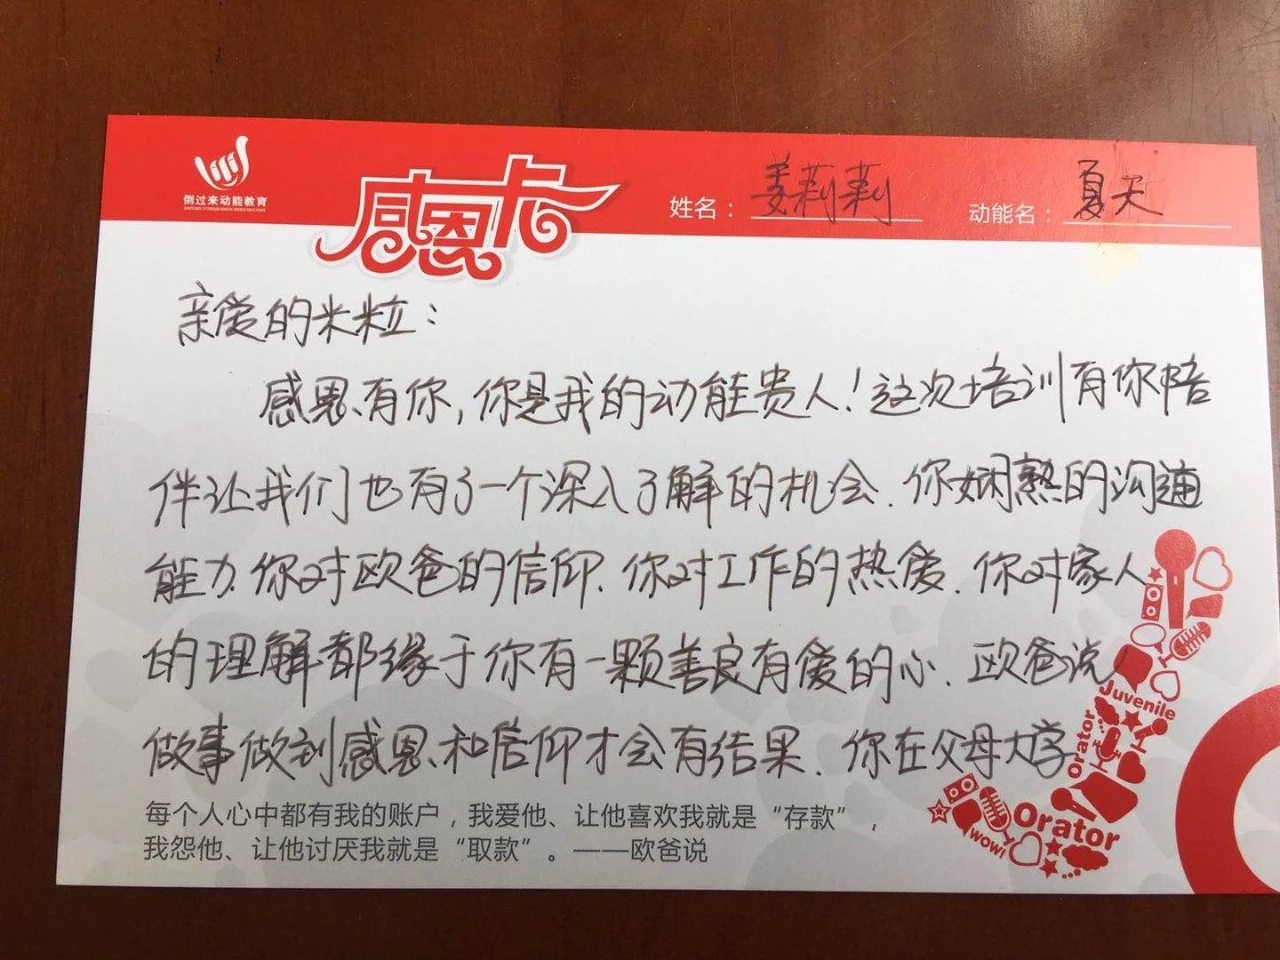 倒过来动能教育
感恩卡
姓名：姜莉莉 动能名：夏天
亲爱的米粒：
感恩有你，你是我的动能贵人！这次培训有你陪
伴让我们也有了一个深入了解的机会.你娴熟的沟通
能力.你对欧爸的信仰.你对工作的热爱.你对家人
的理解都缘于你有一颗善良有爱的心.欧爸说
做事做到感恩和信仰才会有结果.你在父母大学
每个人心中都有我的账户，我爱他、让他喜欢我就是“存款”，
我怨他、让他讨厌我就是“取款”。——欧爸说
Juvenile
Orator
Orator
WOW!